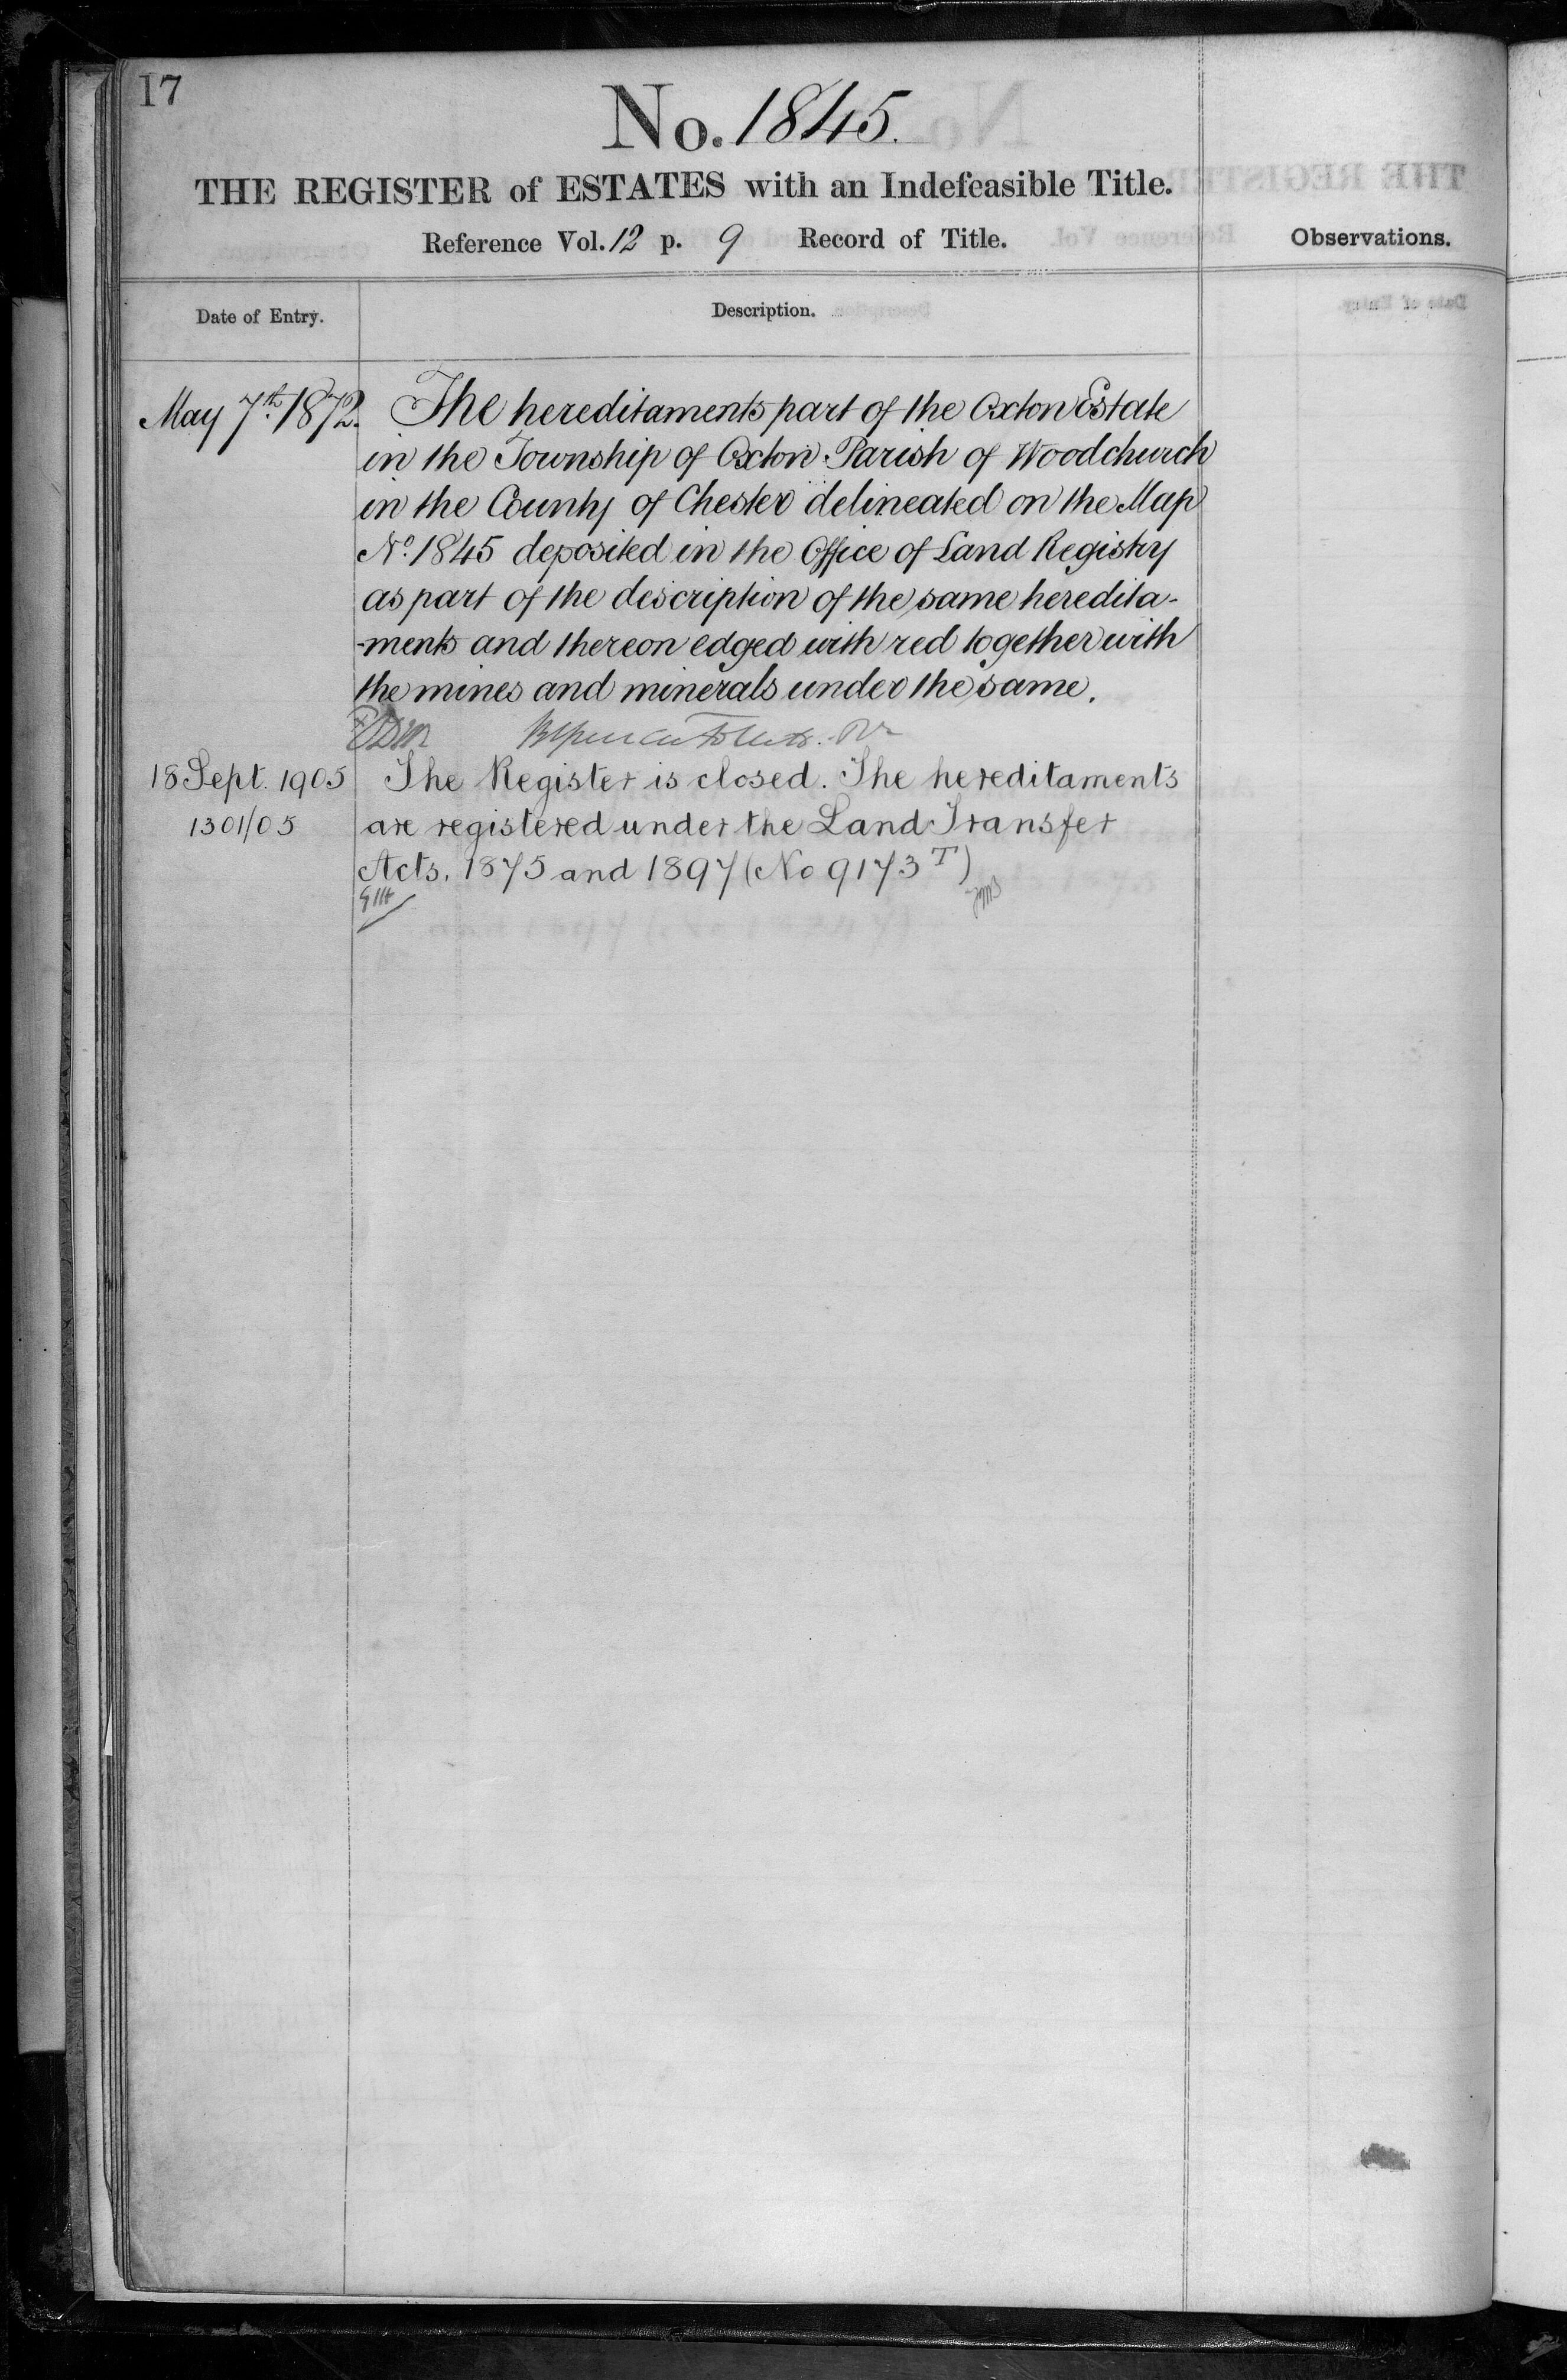 17
No. 1845.
THE REGISTER of ESTATES with an Indefeasible Title.
Reference Vol. 12 p. 9 Record of Title.
Observations.
Date of Entry.
Description.
May 7th. 1872.
The hereditaments part of the Oxton Estate
in the Township of Oxton Parish of Woodchurch
in the County of Chester delineated on the Map
No. 1845 deposited in the Office of Land Registry
as part of the description of the same heredita-
-ments and thereon edged with red together with
the mines and minerals under the same.
18 Sept. 1905
1301/05
The Register is closed. The hereditaments
are registered under the Land Transfer
Acts, 1875 and 1897 (No 9173 T)